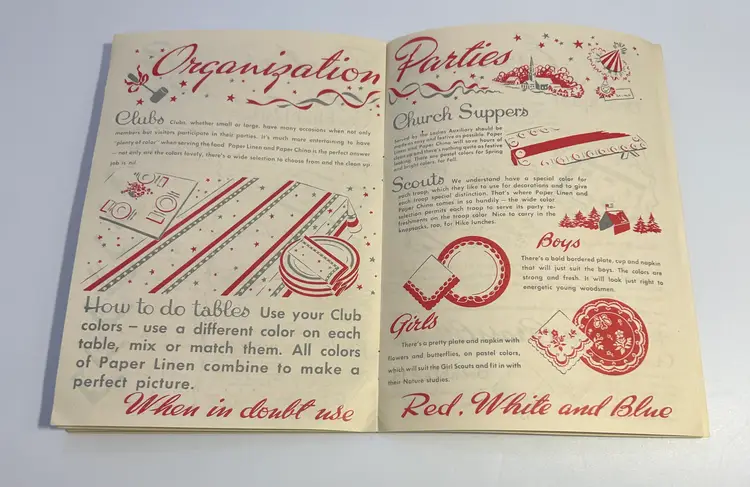 Organization Parties
Clubs Clubs, whether small or large, have many occasions when not only
members but visitors participate in their parties. It's much more entertaining to have
"plenty of color" when serving the food. Paper Linen and Paper China is the perfect answer
— not only are the colors lovely, there's a wide selection to choose from and the clean up
job is nil.
How to do tables Use your Club
colors — use a different color on each
table, mix or match them. All colors
of Paper Linen combine to make a
perfect picture.
When in doubt use Red, White and Blue
Church Suppers
served by the Ladies Auxiliary should be
made as easy and festive as possible. Paper
Linen and Paper China will save hours of
clean up and there's nothing quite as festive
looking. There are pastel colors for Spring
and bright colors for Fall.
Scouts We understand have a special color for
each troop, which they like to use for decorations and to give
each troop special distinction. That's where Paper Linen and
Paper China comes in so handily — the wide color
selection permits each troop to serve its party re-
freshments on the troop color. Nice to carry in the
knapsacks, too, for Hike lunches.
Boys
There's a bold bordered plate, cup and napkin
that will just suit the boys. The colors are
strong and fresh. It will look just right to
energetic young woodsmen.
Girls
There's a pretty plate and napkin with
flowers and butterflies, on pastel colors,
which will suit the Girl Scouts and fit in with
their Nature studies.